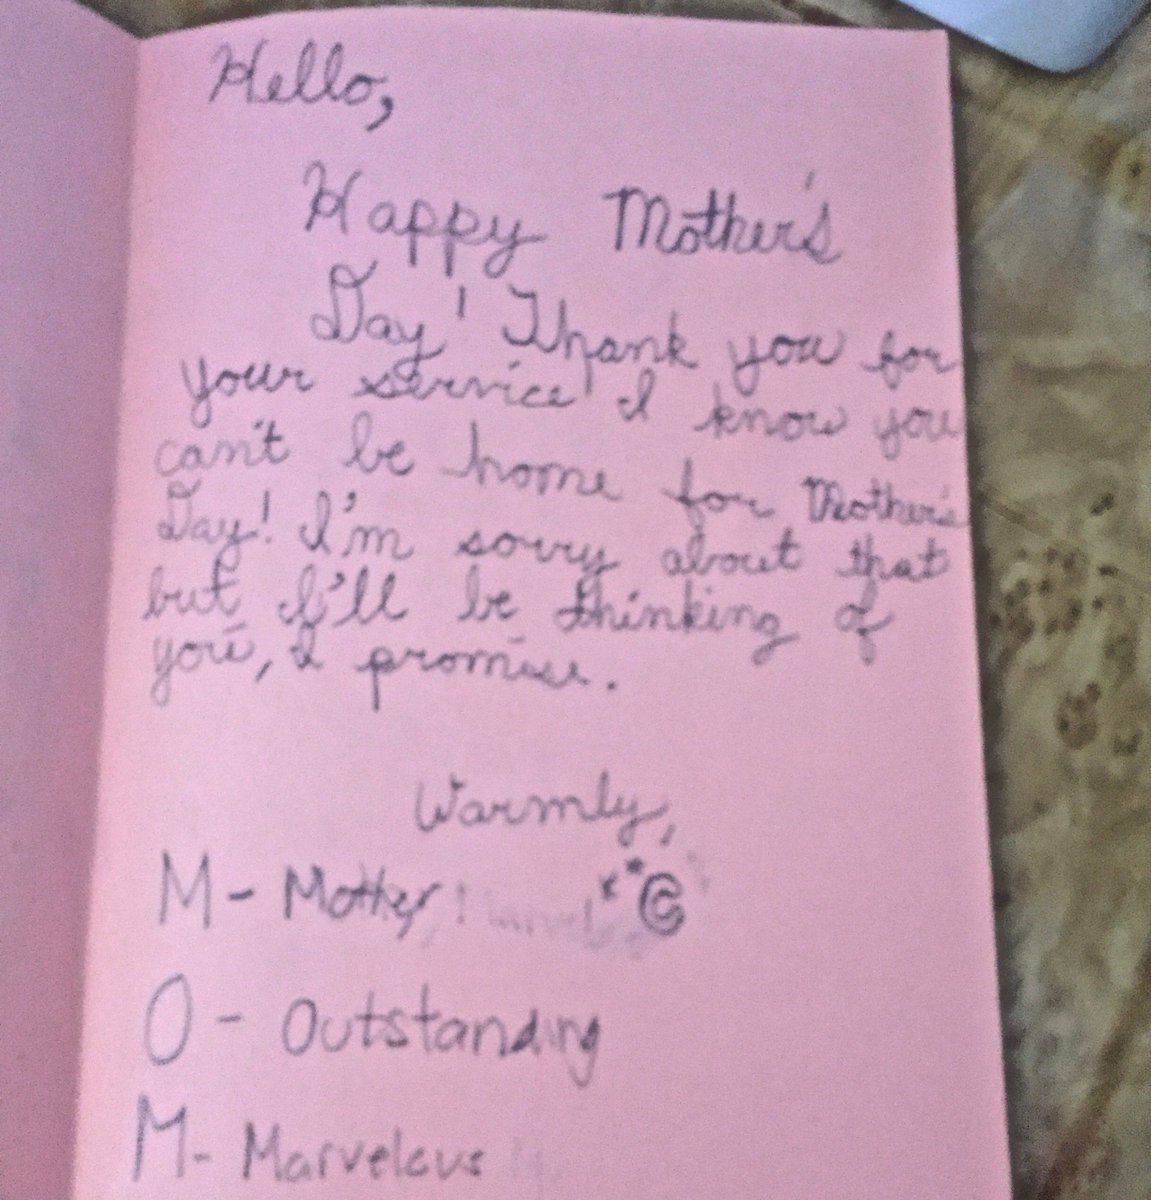 Hello,
Happy Mother's
Day! Thank you for
your service! I know you
can't be home for Mother's
Day! I'm sorry about that
but I'll be thinking of
you, I promise.
Warmly,
M - Mother!
O - Outstanding
M - Marvelous